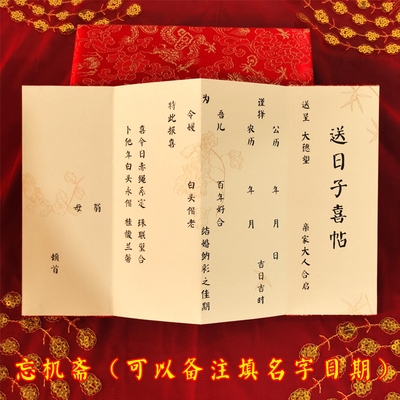 送日子喜帖
送呈 大德望 亲家大人合启
谨择
公历 年 月 日
农历 年 月 吉日吉时
为
吾儿 百年好合
结婚纳彩之佳期
令媛 白头偕老
特此报喜
喜今日赤绳系定 珠联璧合
卜他年白头永偕 桂馥兰馨
翁
母
顿首
忘机斋（可以备注填名字日期）